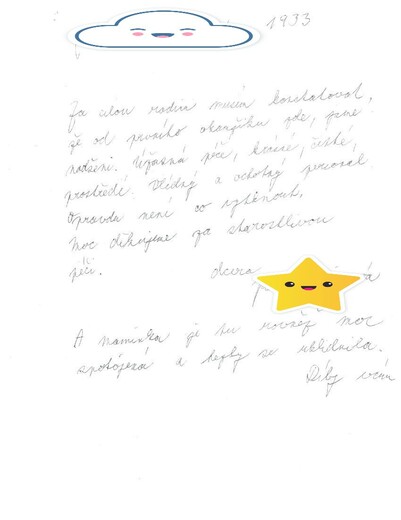 1933
Za celou rodinu musím konstatovat,
že od prvního okamžiku zde, jsme
nadšeni. Úžasná péče, krásné, čisté,
prostředí. Vlídný a ochotný personál.
Opravdu není co vytknout.
Moc děkujeme za starostlivou
péči. dcera
A maminka je tu rovněž moc
spokojená a hezky se uklidnila.
Díky vám